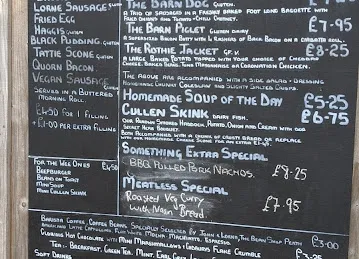 Lorne Sausage
Fried Egg
Haggis Gluten
Black Pudding. Gluten
Tattie Scone
Quorn Bacon
Vegan Sausage
Served in a Buttered
Morning Roll
£4.50 for 1 filling
+£1.00 per extra filling
For the Wee Ones £4.50
Beefburger
Beans on Toast
Mini Soup
Mini Cullen Skink
The Barn Dog Gluten.
A Trio of Sausages in a Freshly Baked Foot Long Baguette with
Fried Onions and Tomato + Chilli Chutney.
£7-95
The Barn Piglet Gluten Dairy
The Rothie Jacket GF. V.
£8-25
A Large Baked Potato topped with your choice of Cheddar
Cheese, Baked Beans, Tuna Mayonnaise or Coronation Chicken
The above are accompanied with a side salad + Dressing
Homemade Chunky Coleslaw and Slightly Salted Crisps.
Homemade Soup of the Day
£5-25
Cullen Skink Dairy Fish.
£6-75
Our Famous Smoked Haddock, Potato, Onion and Cream with our
Secret Herb Bouquet.
Both Accompanied with a chunk of crusty bread or replace
with our Homemade Cheese Scone for an extra £1.45
Something Extra Special
BBQ Pulled Pork Nachos.
£8.25
Meatless Special
Roasted Veg Curry
with Naan Bread
£7.95
Barista Coffee, Coffee Beans Specially Selected by John + Lorna, The Bean Shop Perth
£3-00
Glorious Hot Chocolate with Mini Marshmallows + Cadburys Flake Crumble
£3-25
Tea. Breakfast, Green Tea, Mint, Earl Grey
Soft Drinks